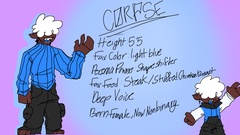 CORPSE
Height 5'5
Fav Color light blue
Persona Power Shapeshifter
Fav Food Steak/Stuffed Chicken breast
Deep Voice
Born Female, Now Nonbinary